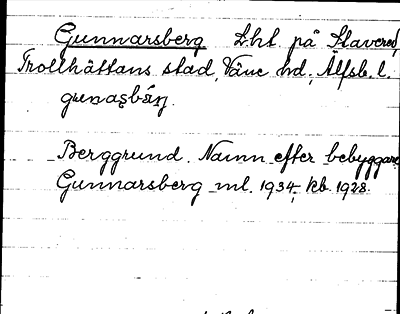 Gunnarsberg Lht på Stavered,
Trollhättans stad, Väne hd, Älfsb. l.
gunaʂbǽrj.
Berggrund. Namn efter bebyggare
Gunnarsberg ml. 1934; kb. 1928.